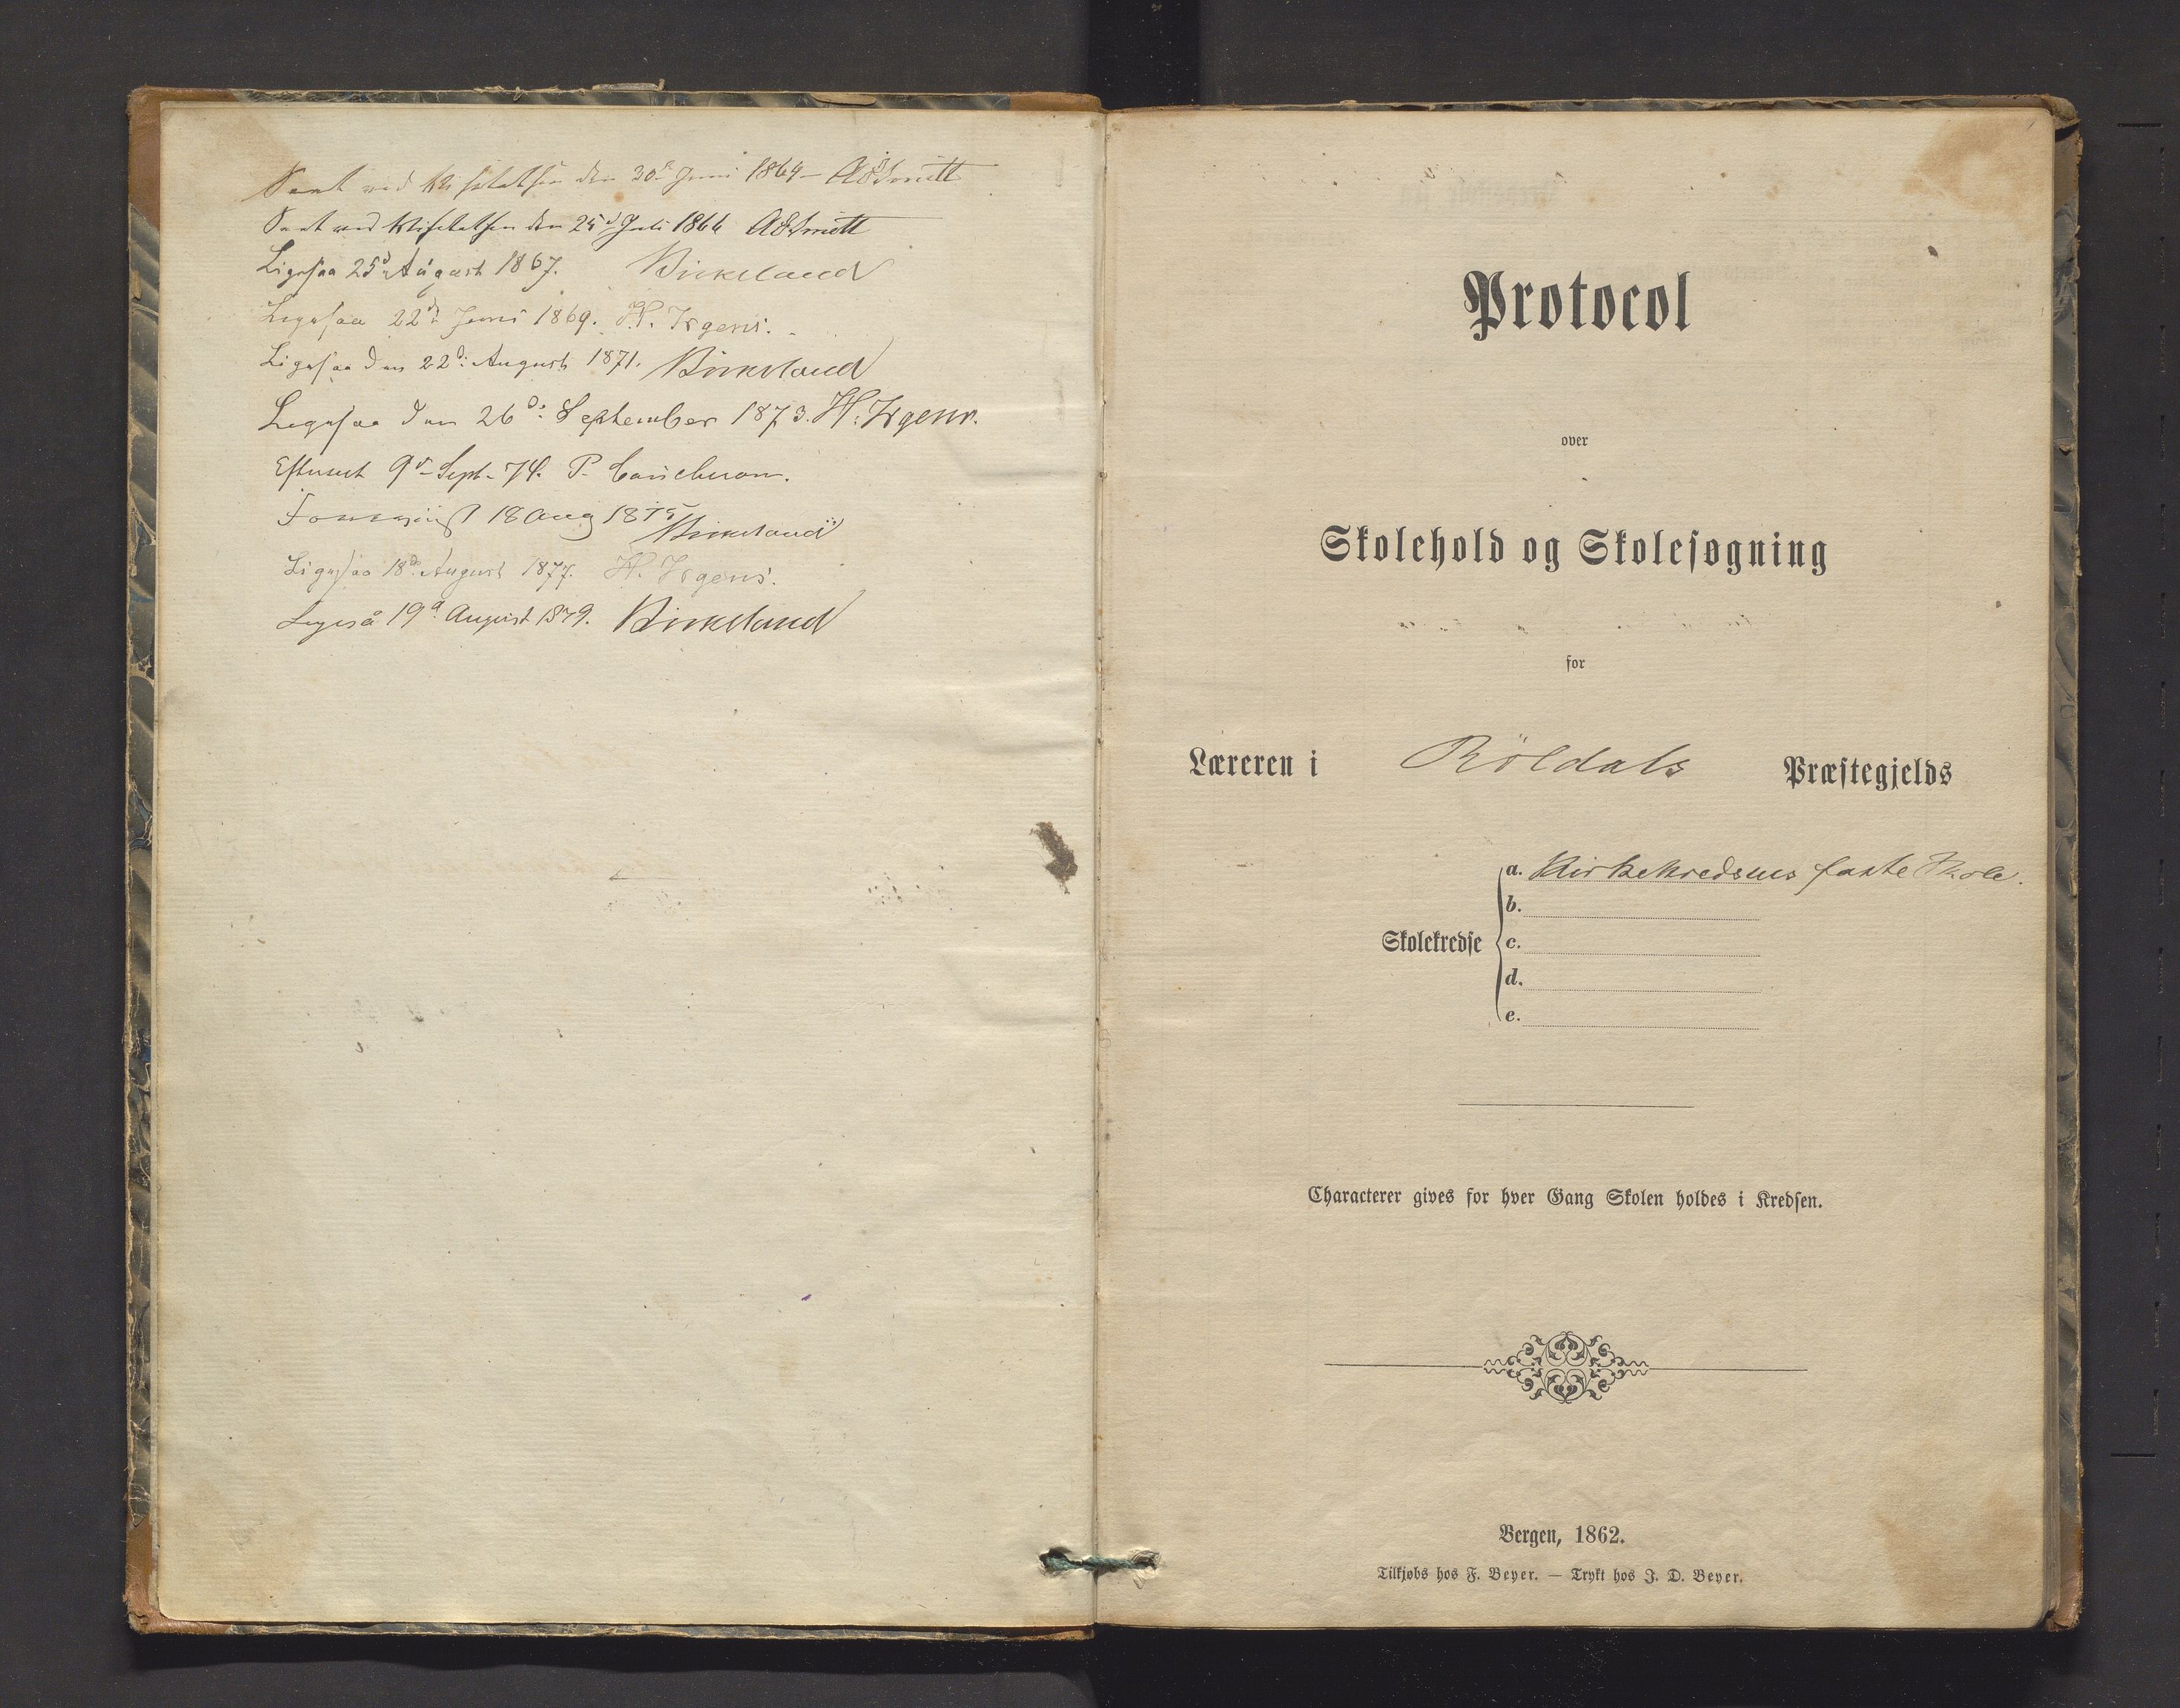 Seet ved Visitatsen den 30te Juni 1864 – AGSmitt
Seet ved Visitatsen den 25d Juli 1866 AGSmitt
Ligesaa 25de August 1867. Birkeland
Ligesaa 22de Juni 1869. H. Irgens.
Ligesaa den 22d: August 1871. Birkeland
Ligesaa den 26d: September 1873. H. Irgens.
Efterseet 9de Sept. 74. P.
Forevist 18 Aug 1875 Birkeland
Ligesaa 18de August 1877. H. Irgens.
Ligeså 19d August 1879. Birkeland
Protocol
over
Skolehold og Skolesøgning
for
Læreren i Röldals Præstegjelds
Skolekredse
a. Kirkekredsens faste Skole.
b.
c.
d.
e.
Characterer gives for hver Gang Skolen holdes i Kredsen.
Bergen, 1862.
Tilkjøbs hos F. Beyer. — Trykt hos J. D. Beyer.